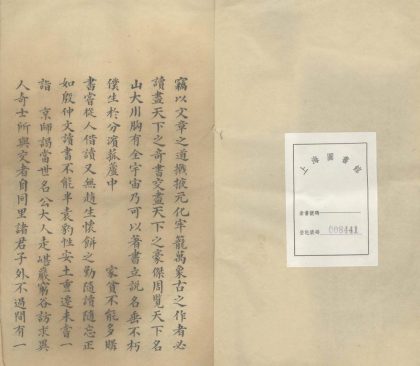 竊以文章之道檄掞元化牢籠萬象古之作者必
讀盡天下之奇書交盡天下之豪傑周覽天下名
山大川胸有全宇宙乃可以著書立說名垂不朽
僕生於分濱菰蘆中　　家貧不能多購
書甯從人借讀又無趙生懷餅之勤隨讀隨忘正
如殷仲文讀書不能半袁豹性安土重遷未嘗一
詣　京師謁當世名公大人走巉巖窮谷訪求異
人奇士所與交者自同里諸君子外不過間有一
上海圖書館
索書號碼
登記號碼 008441